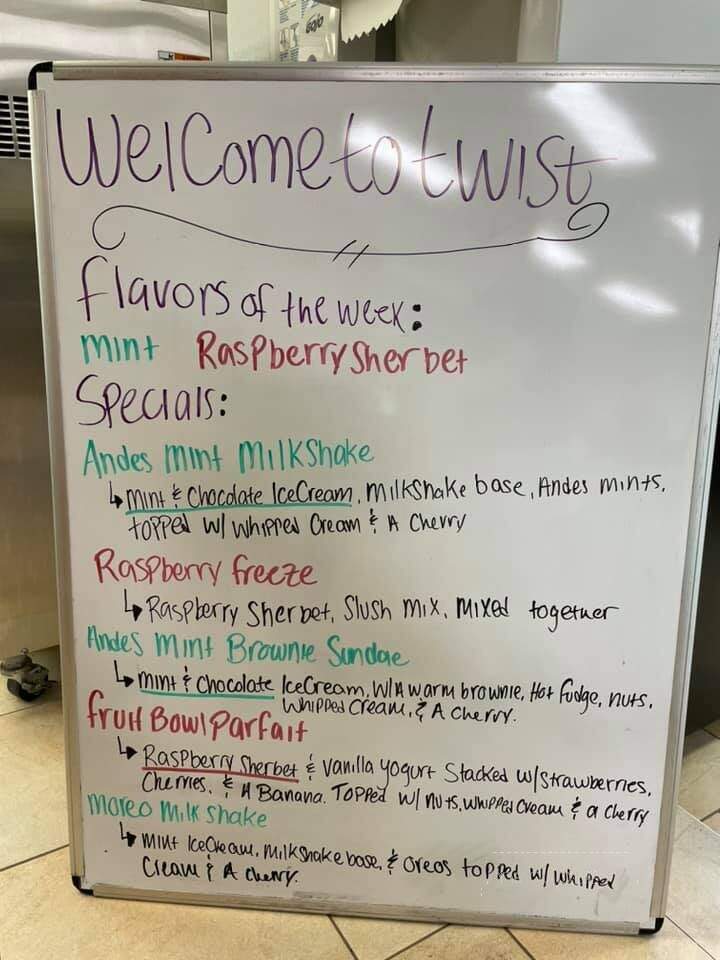 GOJO
Welcome to twist
flavors of the week:
mint Raspberry Sherbet
Specials:
Andes mint Milkshake
↳ mint & Chocolate IceCream, milkshake base, Andes mints,
topped w/ whipped Cream & A Cherry
Raspberry freeze
↳ Raspberry Sherbet, Slush mix, mixed together
Andes mint Brownie Sundae
↳ mint & Chocolate IceCream, w/A warm brownie, Hot fudge, nuts,
whipped Cream, & A Cherry.
fruit Bowl Parfait
↳ Raspberry Sherbet & vanilla yogurt Stacked w/strawberries,
Cherries, & A Banana. Topped w/ nuts, whipped Cream & a Cherry
moreo milkshake
↳ mint IceCream, milkshake base, & Oreos topped w/ whipped
Cream & A Cherry.